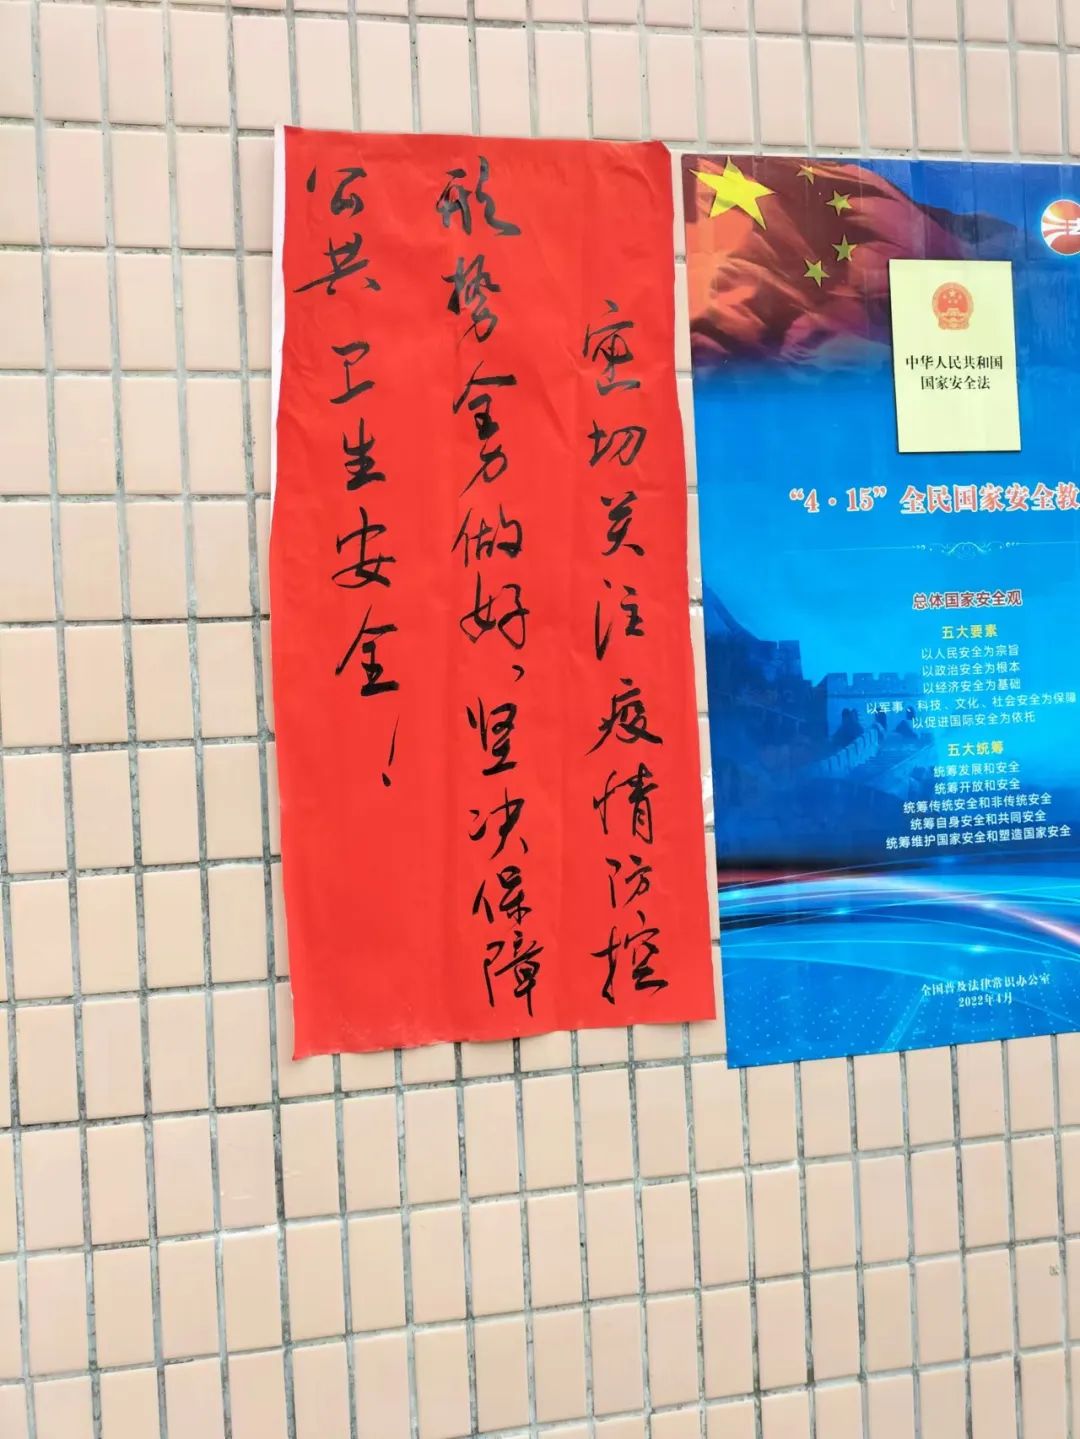 密切关注疫情防控
形势全力做好、坚决保障
公共卫生安全！
中华人民共和国
国家安全法
“4·15”全民国家安全教
总体国家安全观
五大要素
以人民安全为宗旨
以政治安全为根本
以经济安全为基础
以军事、科技、文化、社会安全为保障
以促进国际安全为依托
五大统筹
统筹发展和安全
统筹开放和安全
统筹传统安全和非传统安全
统筹自身安全和共同安全
统筹维护国家安全和塑造国家安全
全国普及法律常识办公室
2022年4月